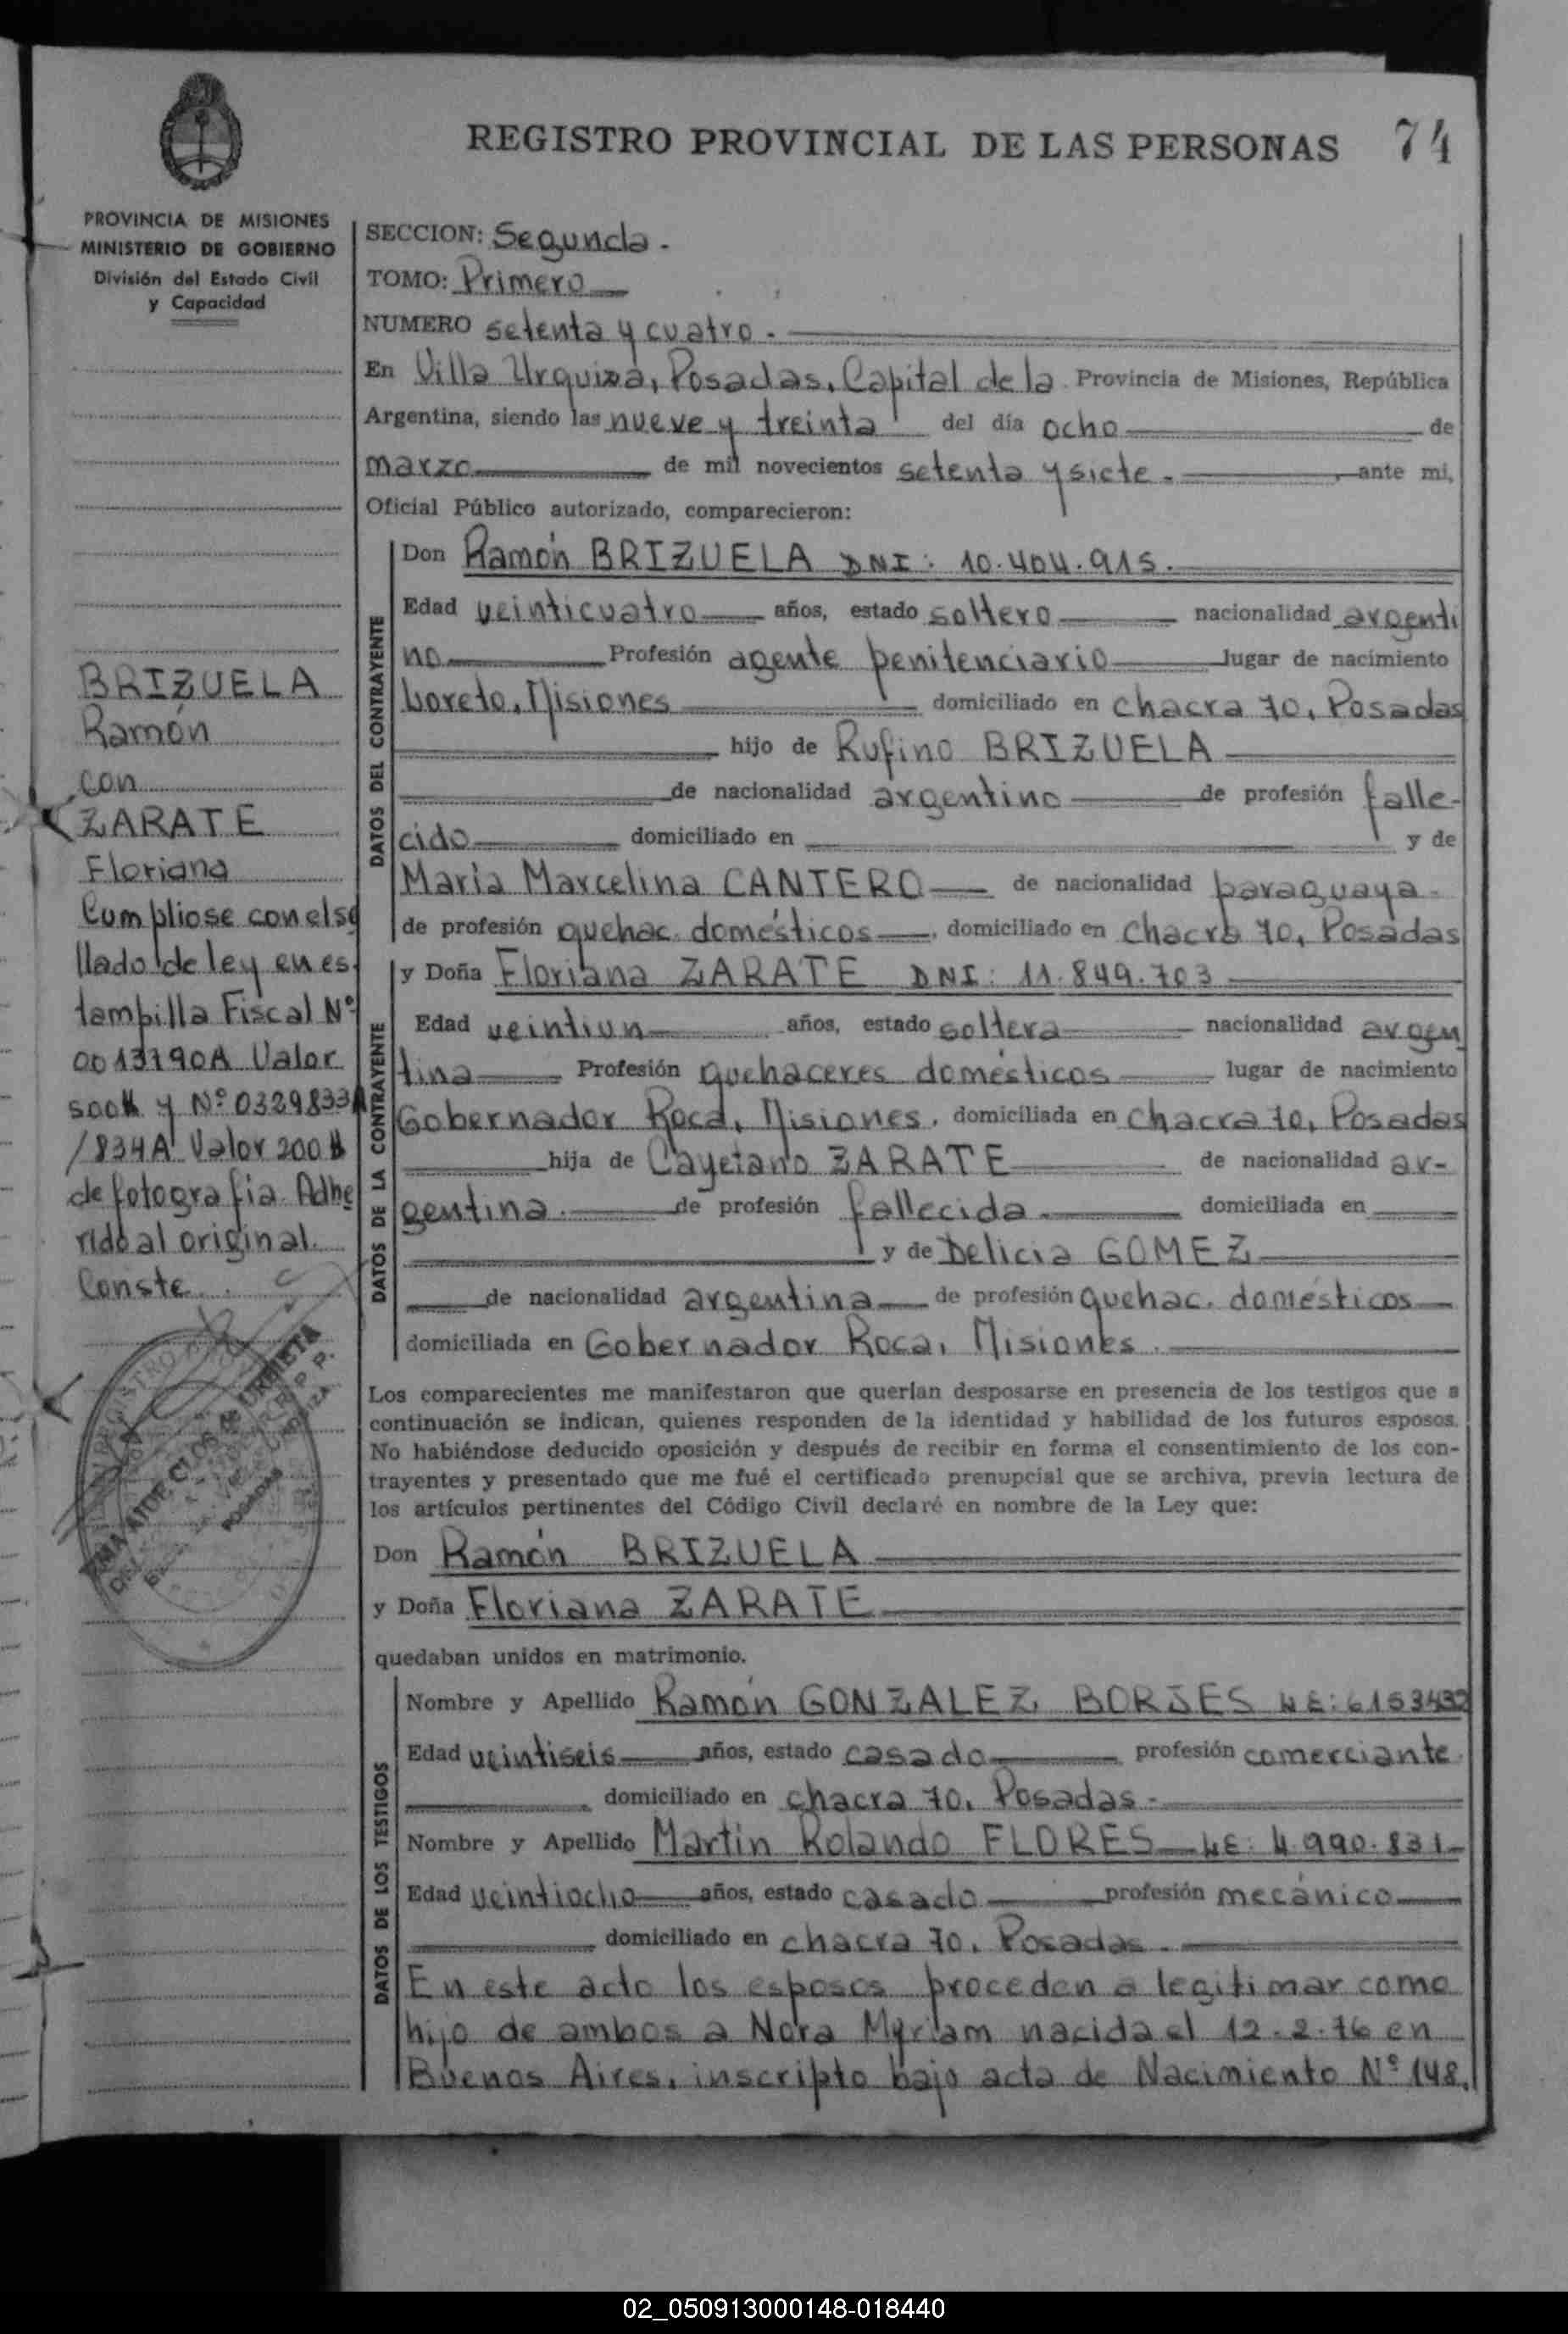 REGISTRO PROVINCIAL DE LAS PERSONAS 74
PROVINCIA DE MISIONES
MINISTERIO DE GOBIERNO
División del Estado Civil
y Capacidad
BRIZUELA
Ramón
con
ZARATE
Floriana
Cumpliose con el se
llado de ley en es
tampilla Fiscal Nº
0013790A Valor
500$ y Nº 0329833A
/834A Valor 200$
de fotografia Adhe
rido al original.
Conste.
URBIETA
POSADAS
SECCION: Segunda.
TOMO: Primero
NUMERO setenta y cuatro.
En Villa Urquiza, Posadas, Capital de la Provincia de Misiones, República
Argentina, siendo las nueve y treinta del día ocho de
marzo de mil novecientos setenta y siete. ante mi,
Oficial Público autorizado, comparecieron:
DATOS DEL CONTRAYENTE
Don Ramón BRIZUELA DNI: 10.404.915.
Edad veinticuatro años, estado soltero nacionalidad argenti
no Profesión agente penitenciario lugar de nacimiento
Loreto, Misiones domiciliado en chacra 70, Posadas
hijo de Rufino BRIZUELA
de nacionalidad argentino de profesión falle-
cido domiciliado en y de
Maria Marcelina CANTERO de nacionalidad paraguaya.
de profesión quehac. domésticos, domiciliado en chacra 70, Posadas
DATOS DE LA CONTRAYENTE
y Doña Floriana ZARATE DNI: 11.849.703
Edad veintiun años, estado soltera nacionalidad argen
tina Profesión quehaceres domésticos lugar de nacimiento
Gobernador Roca, Misiones, domiciliada en chacra 70, Posadas
hija de Cayetano ZARATE de nacionalidad ar-
gentina. de profesión fallecida domiciliada en
y de Delicia GOMEZ
de nacionalidad argentina de profesión quehac. domésticos
domiciliada en Gobernador Roca, Misiones.
Los comparecientes me manifestaron que querían desposarse en presencia de los testigos que a
continuación se indican, quienes responden de la identidad y habilidad de los futuros esposos.
No habiéndose deducido oposición y después de recibir en forma el consentimiento de los con-
trayentes y presentado que me fué el certificado prenupcial que se archiva, previa lectura de
los artículos pertinentes del Código Civil declaré en nombre de la Ley que:
Don Ramón BRIZUELA
y Doña Floriana ZARATE
quedaban unidos en matrimonio.
DATOS DE LOS TESTIGOS
Nombre y Apellido Ramón GONZALEZ BORJES LE: 6153432
Edad veintiseis años, estado casado profesión comerciante
domiciliado en chacra 70, Posadas.
Nombre y Apellido Martin Rolando FLORES LE: 4.990.831
Edad veintiocho años, estado casado profesión mecánico
domiciliado en chacra 70, Posadas.
En este acto los esposos proceden a legitimar como
hijo de ambos a Nora Myriam nacida el 12-2-76 en
Buenos Aires, inscripto bajo acta de Nacimiento Nº 148,
02_050913000148-018440